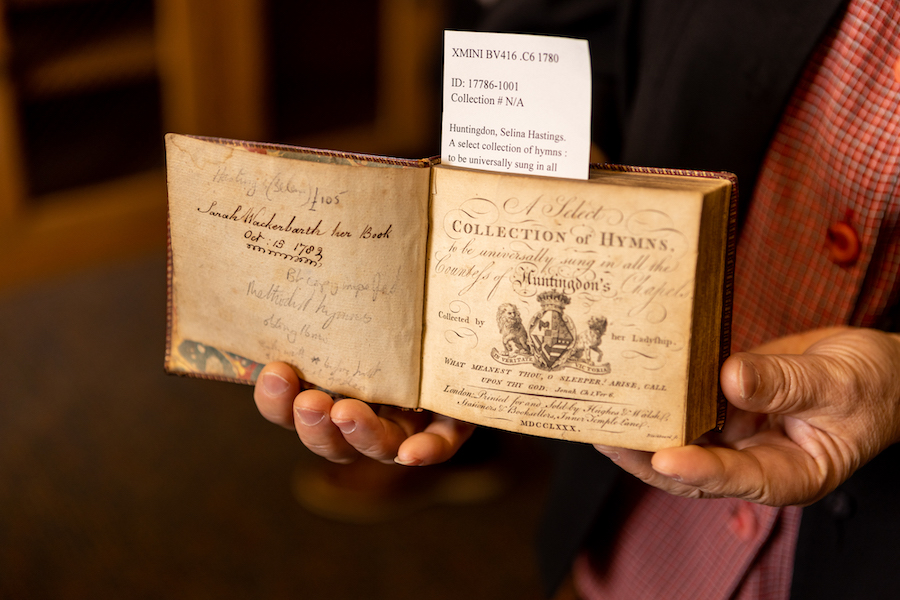 XMINI BV416 .C6 1780
ID: 17786-1001
Collection # N/A
Huntingdon, Selina Hastings.
A select collection of hymns :
to be universally sung in all
£105
Sarah Wackerbarth her Book
Oct: 15 1783
Methodist hymns
A Select
COLLECTION of HYMNS.
to be universally sung in all the
Countess of Huntingdon's Chapels
Collected by her Ladyship.
IN VERITATE VICTORIA
WHAT MEANEST THOU, O SLEEPER! ARISE, CALL
UPON THY GOD. Jonah Ch. 1 Ver 6.
London: Printed for and Sold by Hughes & Walsh,
Stationers & Booksellers, Inner Temple Lane.
MDCCLXXX.